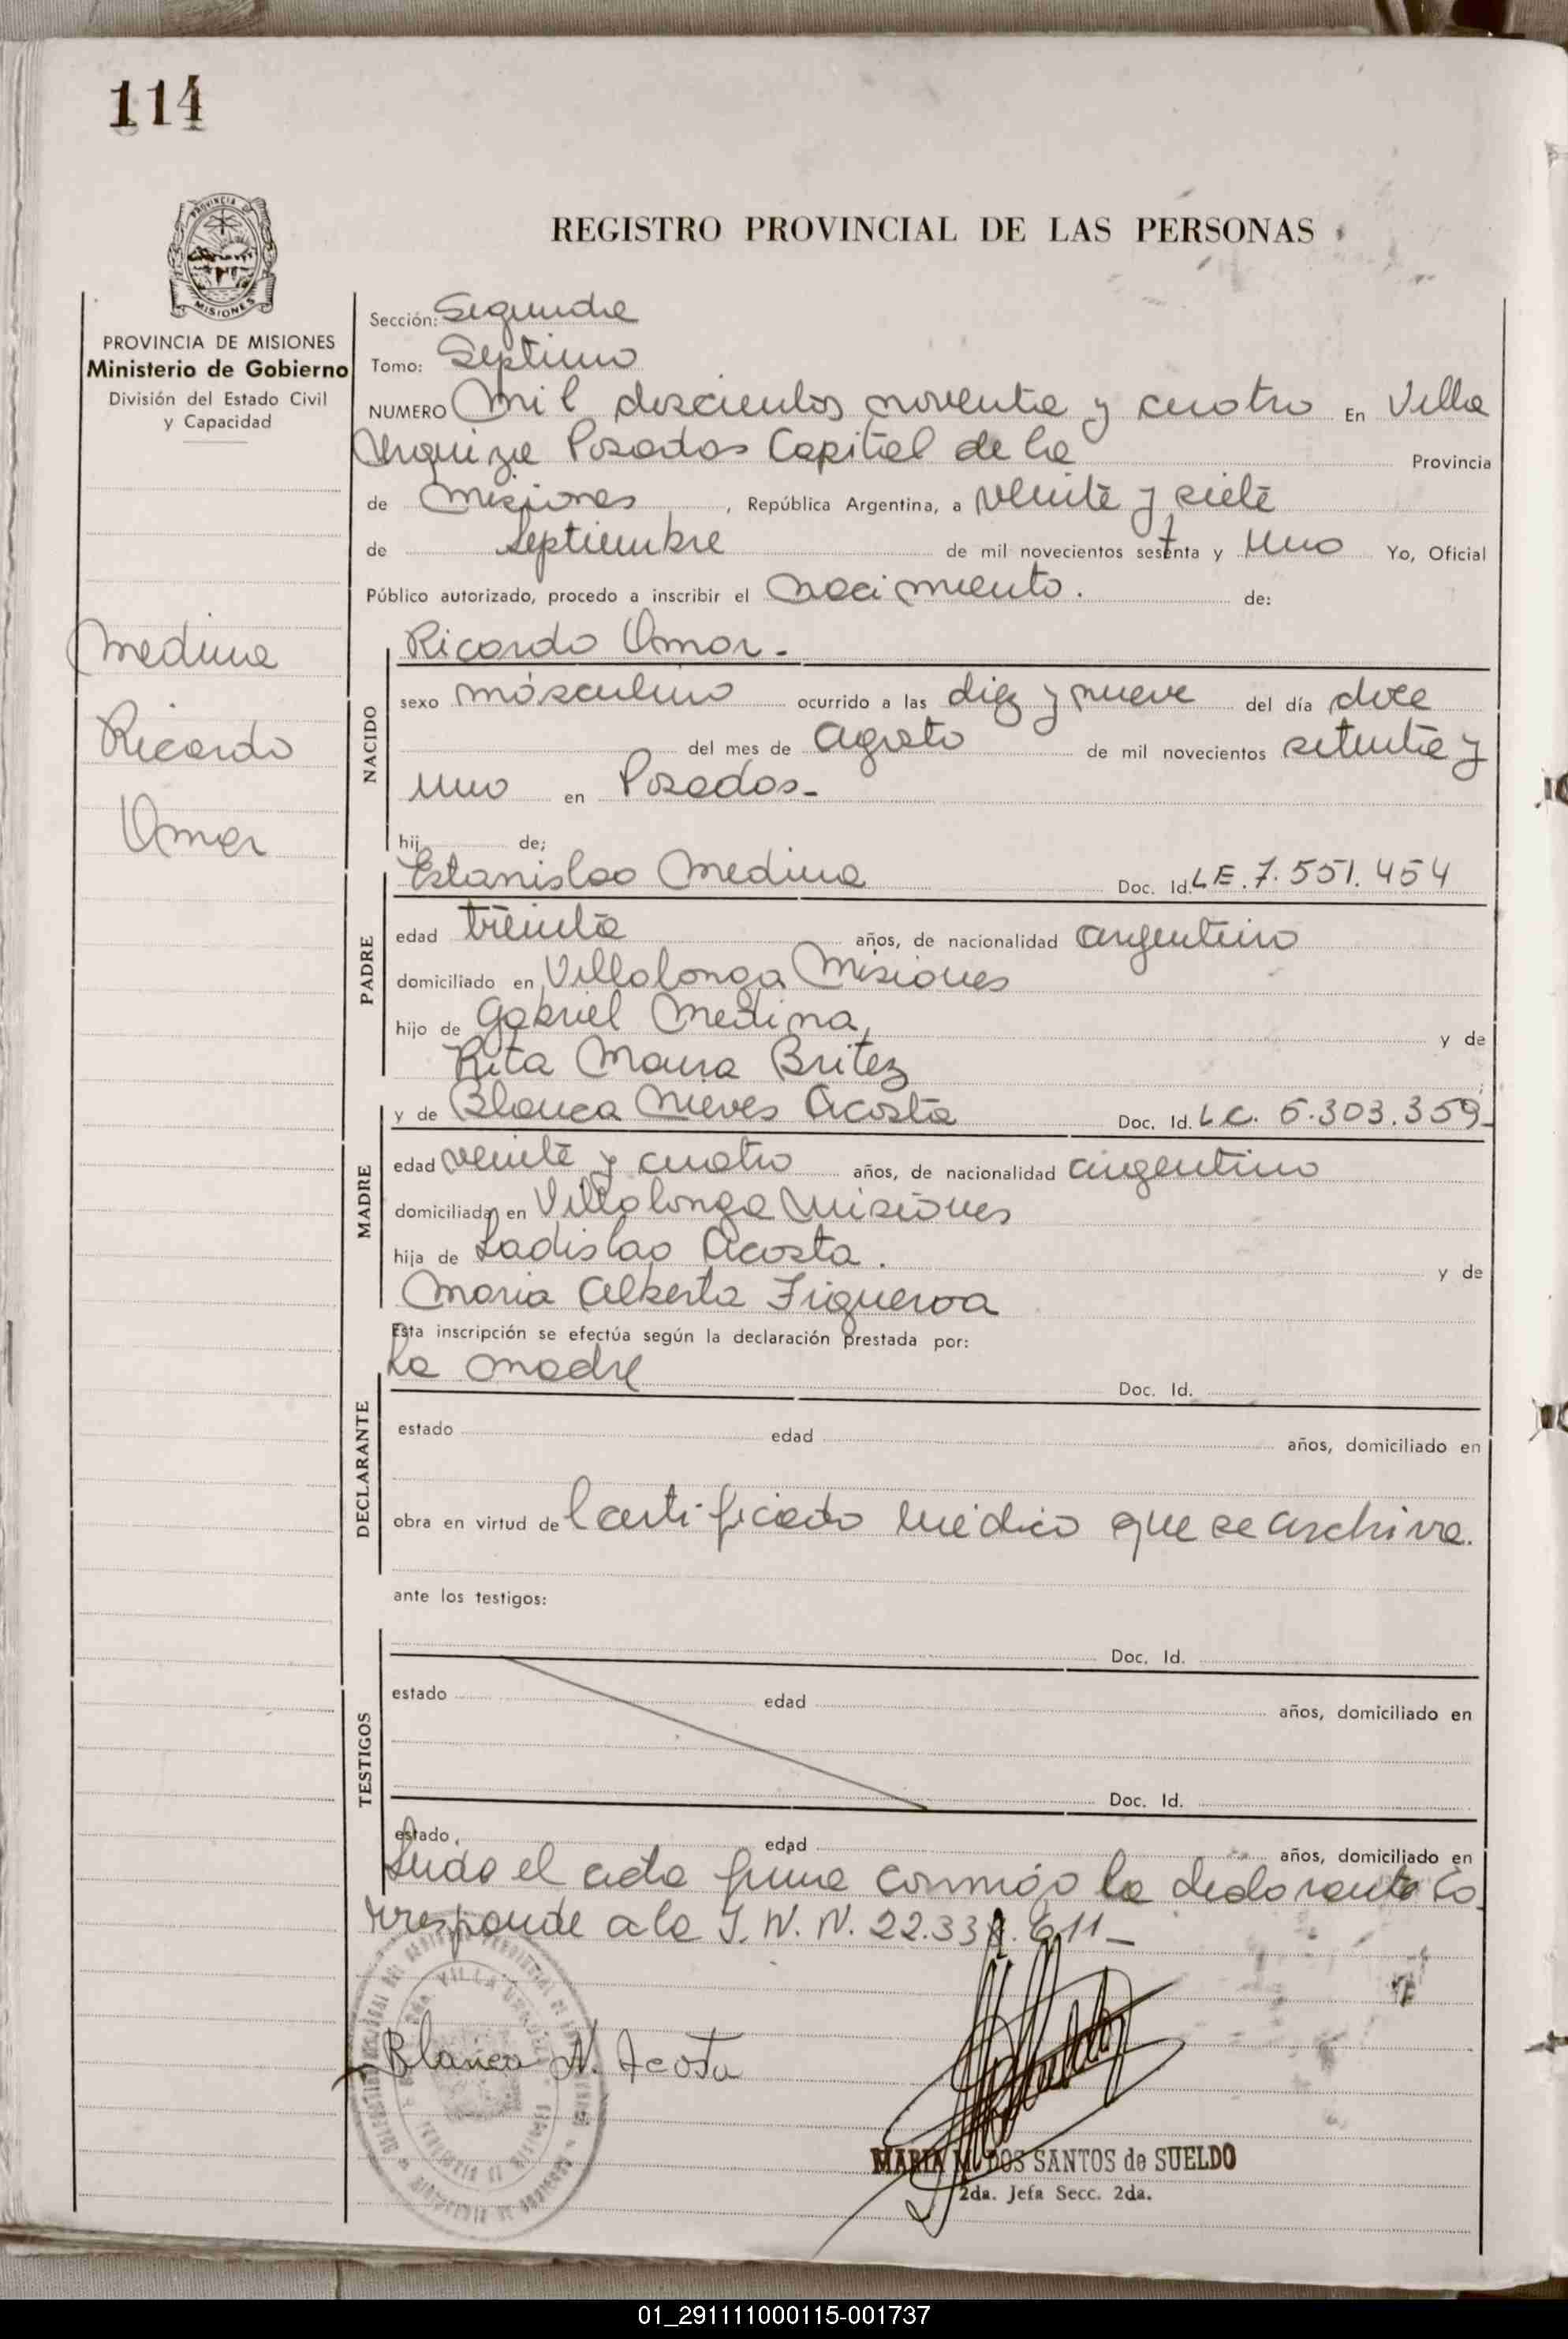 114
PROVINCIA DE MISIONES
Ministerio de Gobierno
División del Estado Civil
y Capacidad
Medina
Ricardo
Omar
REGISTRO PROVINCIAL DE LAS PERSONAS
Sección: Segunda
Tomo: Septimo
NUMERO Mil doscientos noventa y cuatro En Villa
Urquiza Posadas Capital de la Provincia
de Misiones, República Argentina, a veinte y siete
de Septiembre de mil novecientos setenta y uno Yo, Oficial
Público autorizado, procedo a inscribir el nacimiento. de:
NACIDO
Ricardo Omar.-
sexo másculino ocurrido a las diez y nueve del día doce
del mes de agosto de mil novecientos setenta y
uno en Posadas-
hij de;
PADRE
Estanislao Medina Doc. Id. LE. 7.551.454
edad treinta años, de nacionalidad argentino
domiciliado en Villalonga Misiones
hijo de Gabriel Medina, y de
Rita Maura Britez
MADRE
y de Blanca Nieves Acosta Doc. Id. L.C. 6.303.359-
edad veinte y cuatro años, de nacionalidad argentino
domiciliada en Villalonga Misiones
hija de Ladislao Acosta. y de
Maria Alberta Figueroa
Esta inscripción se efectúa según la declaración prestada por:
DECLARANTE
La madre Doc. Id.
estado edad años, domiciliado en
obra en virtud de Certificado médico que se archiva.
ante los testigos:
TESTIGOS
Doc. Id.
estado edad años, domiciliado en
Doc. Id.
estado edad años, domiciliado en
Leida el acta firma conmigo la declarante Co
rresponde a la I. N. N. 22.33 .611-
Blanca N. Acosta
MARIA M. DOS SANTOS de SUELDO
2da. Jefa Secc. 2da.
01_291111000115-001737